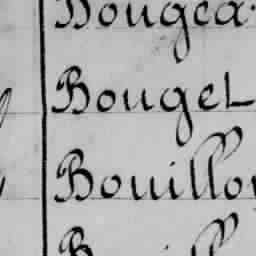 Bougea
Bouget
Bouillon